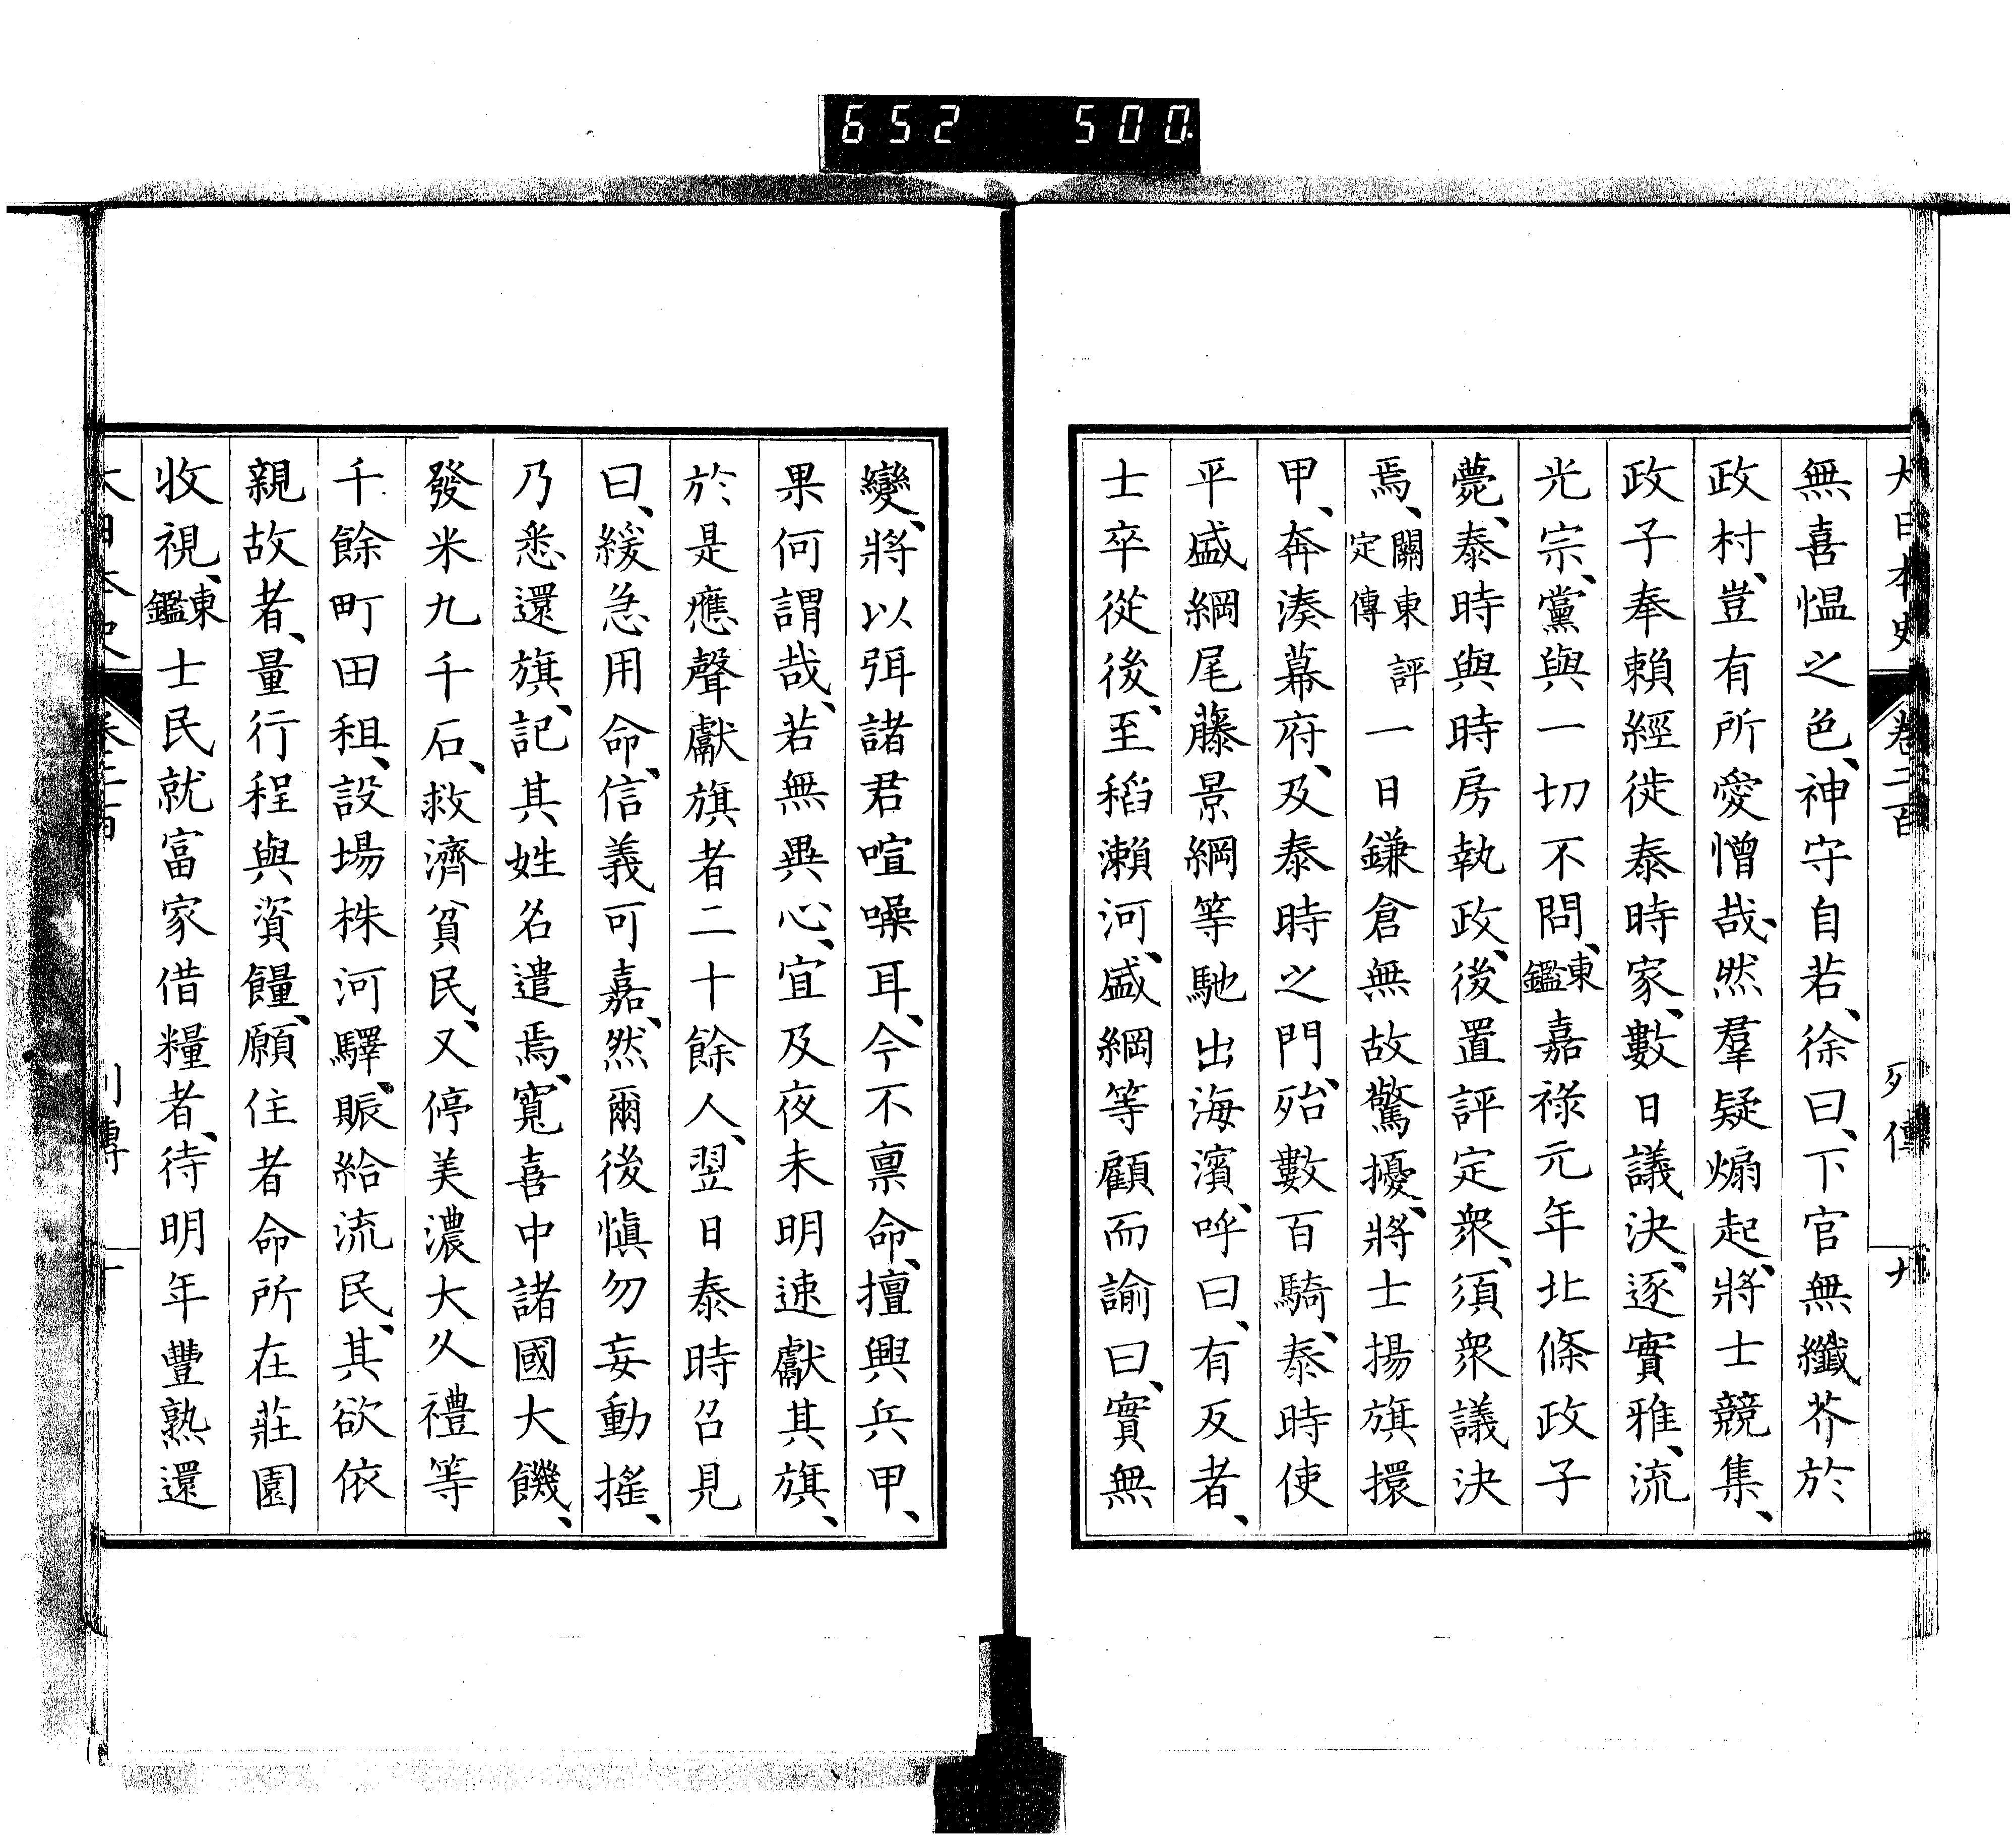 652 500.
大日本史 卷二百 列傳 九
無喜慍之色、神守自若、徐曰、下官無纖芥於
政村、豈有所愛憎哉、然羣疑煽起、將士競集、
政子奉賴經徙泰時家、數日議決、逐實雅、流
光宗、黨與一切不問、東鑑嘉祿元年北條政子
薨、泰時與時房執政、後置評定衆、須衆議決
焉、關東評定傳一日鎌倉無故驚擾、將士揚旗擐
甲、奔湊幕府、及泰時之門、殆數百騎、泰時使
平盛綱尾藤景綱等馳出海濱、呼曰、有反者、
士卒從後、至稻瀨河、盛綱等顧而諭曰、實無
變、將以弭諸君喧噪耳、今不稟命、擅興兵甲、
果何謂哉、若無異心、宜及夜未明速獻其旗、
於是應聲獻旗者二十餘人、翌日泰時召見
曰、緩急用命、信義可嘉、然爾後愼勿妄動搖、
乃悉還旗、記其姓名遣焉、寬喜中諸國大饑、
發米九千石、救濟貧民、又停美濃大久禮等
千餘町田租、設場株河驛、賑給流民、其欲依
親故者、量行程與資糧、願住者命所在莊園
收視、東鑑士民就富家借糧者、待明年豐熟還
大日本史 卷二百 列傳 十